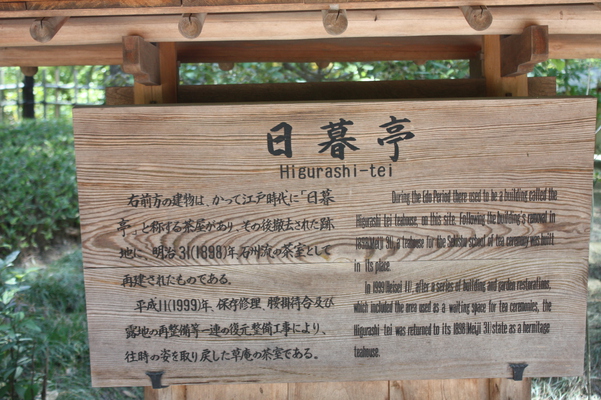 日暮亭
Higurashi-tei
右前方の建物は、かつて江戸時代に「日暮
亭」と称する茶屋があり、その後撤去された跡
地に、明治31(1898)年、石州流の茶室として
再建されたものである。
平成11(1999)年、保存修理、腰掛待合及び
露地の再整備等一連の復元整備工事により、
往時の姿を取り戻した草庵の茶室である。
During the Edo Period there used to be a building called the
Higurashi tei teahouse, on this site. Following the building's removal in
1898(Meiji 31), a teahouse for the Sekishu school of tea ceremony was built
in its place.
In 1999(Heisei 11), after a series of building and garden restorations,
which included the area used as a waiting space for tea ceremonies, the
Higurashi-tei was returned to its 1898(Meiji 31) state as a hermitage
teahouse.